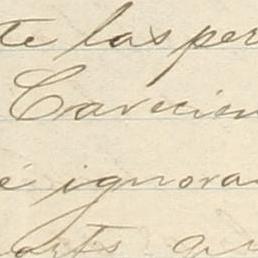 te las per
Carecien
é ignora